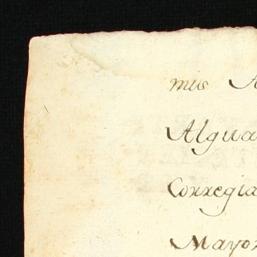 mis
Algua
Corregia
Mayor